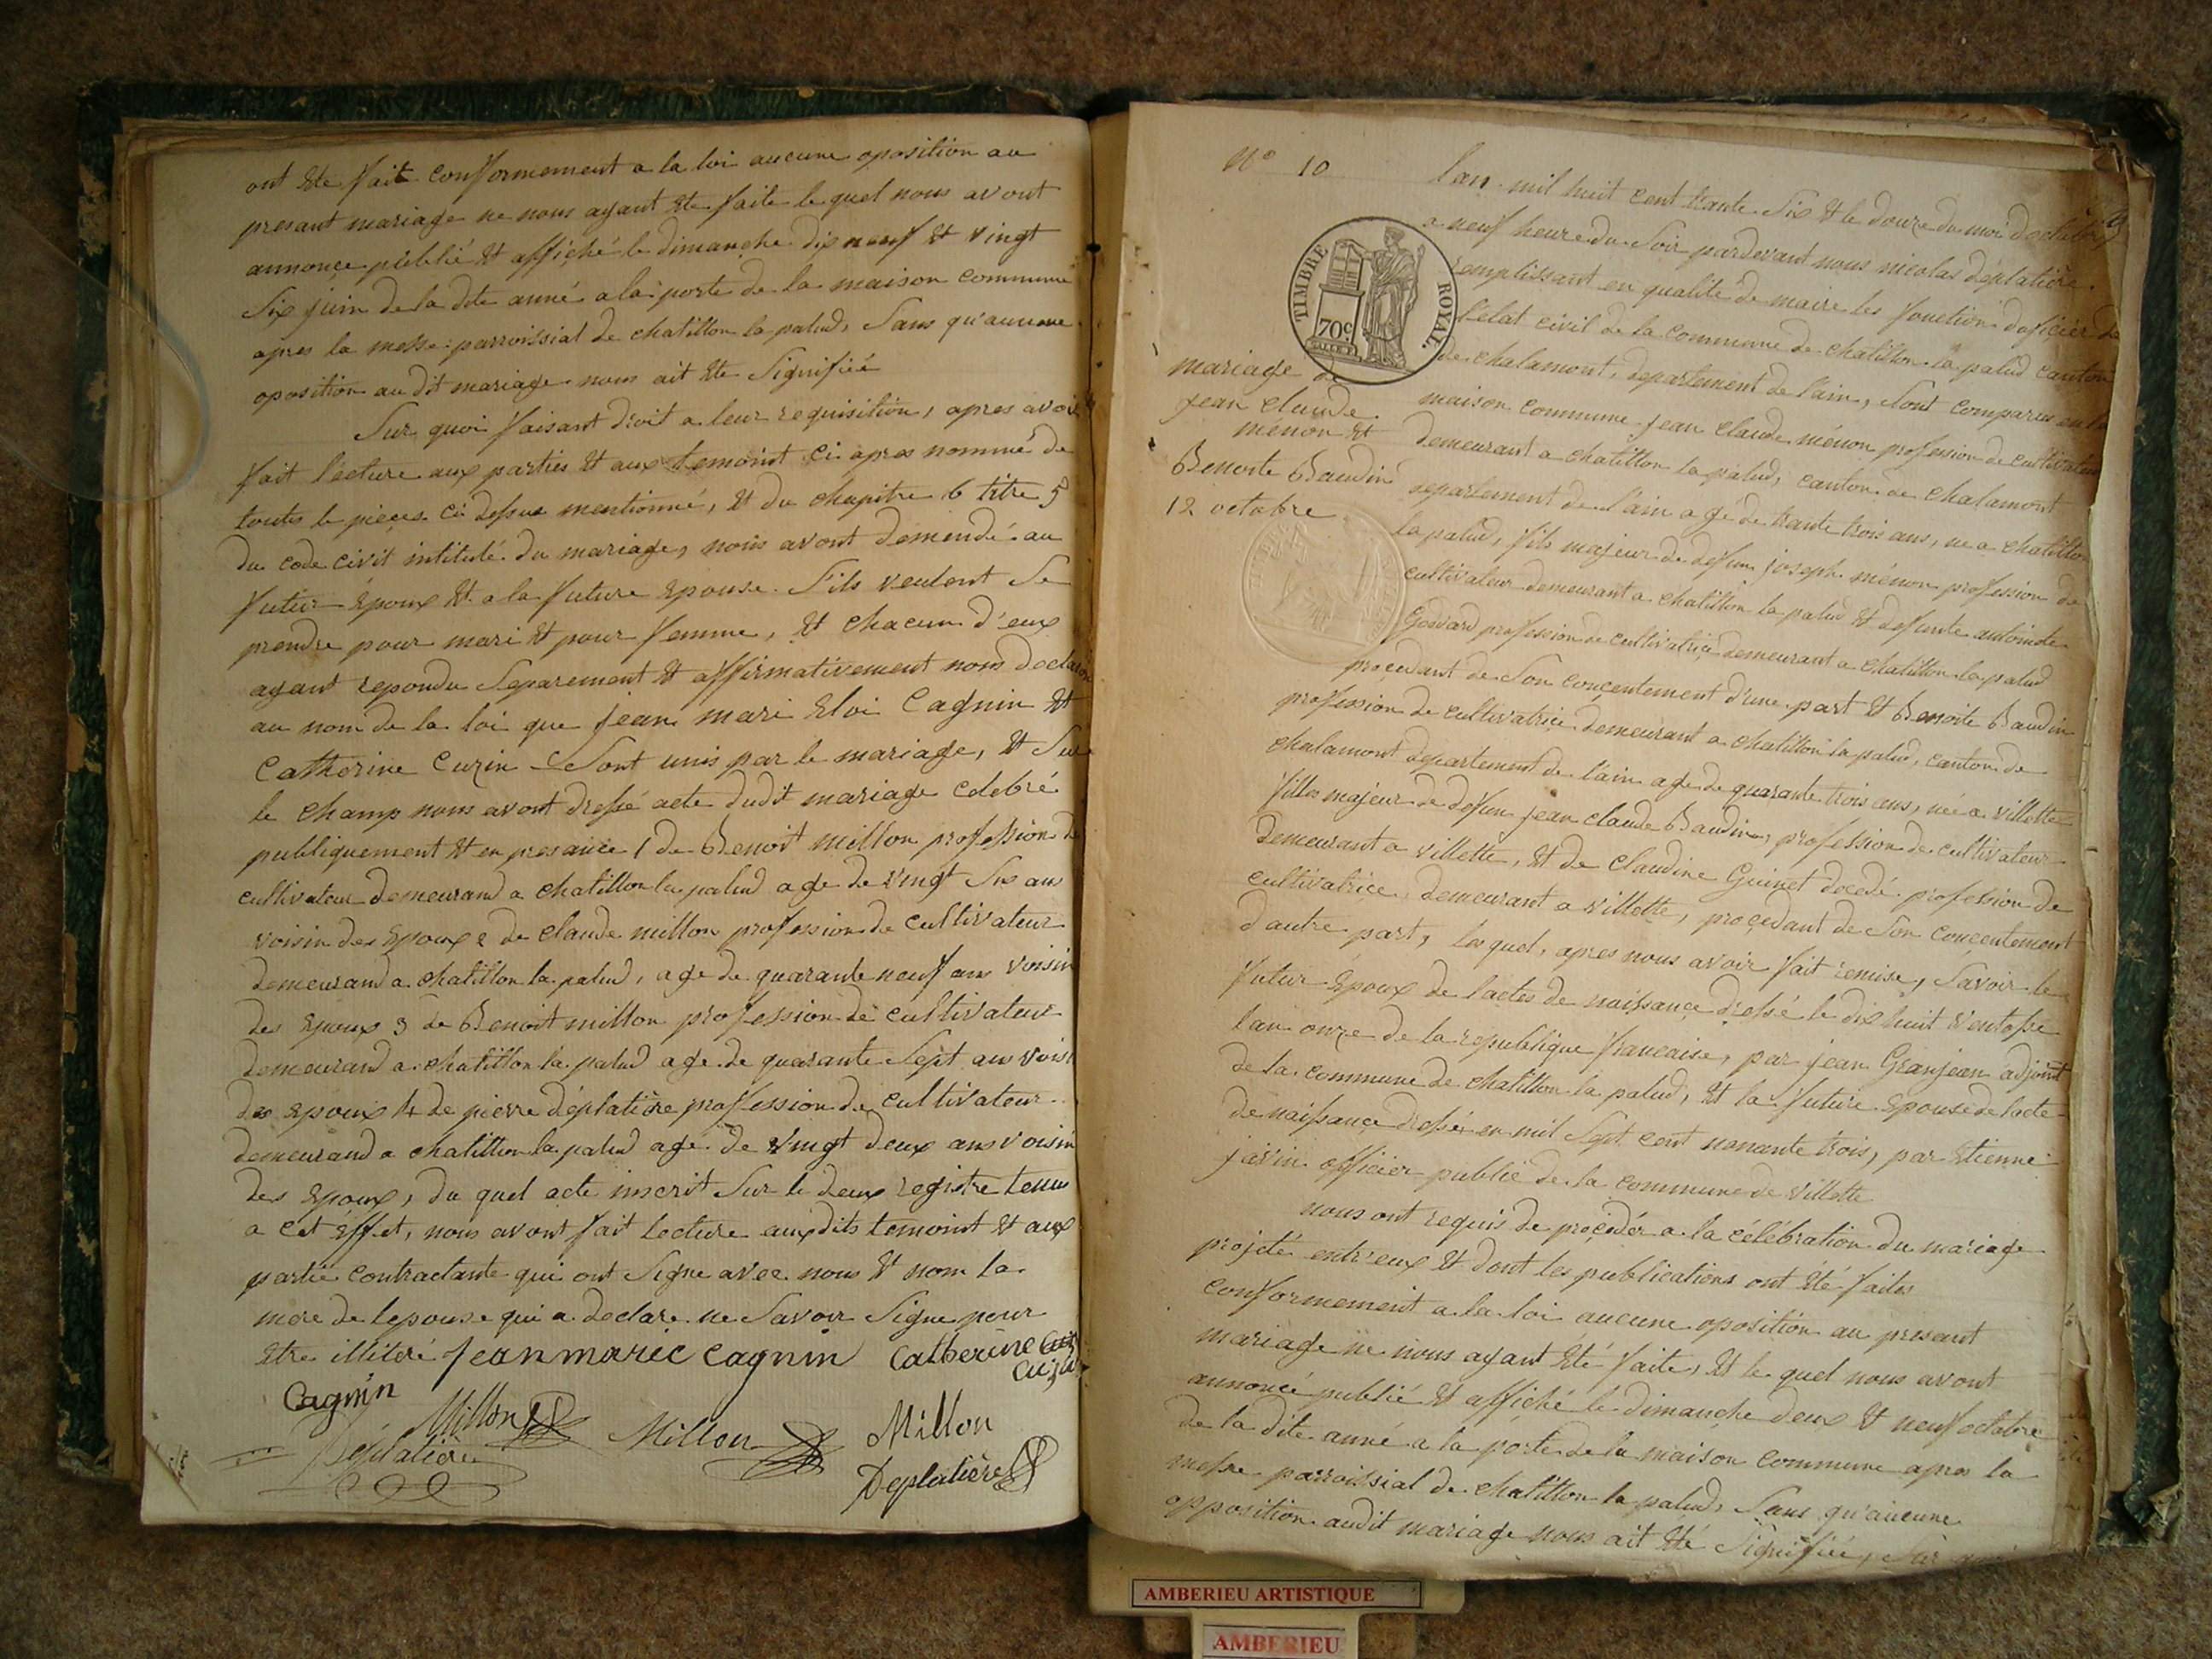 ont été fait conformement a la loi aucune oposition au
presant mariage ne nous ayant été faite le quel nous avont
annonçe publié et affiché le dimanche dix neuf et vingt
Six juin de la dite anné a la porte de la maison commune
apres la messe parroissial de chatillon la palud, Sans qu'aucune
oposition au dit mariage nous ait été Signifiée
Sur quoi faisant droit a leur requisition, apres avoir
fait lecture aux parties et aux temoint ci apres nommé de
toutes le pieçes ci dessus mentionné, et du chapitre 6 titre 5
du code civit intitulé du mariage, nous avont demendé au
futur époux et a la future epouse S'ils veulent Se
prendre pour mari et pour femme, et chacun d'eux
ayant repondu Separement et affirmativement nous declaron
au nom de la loi que jean mari Eloi Cagnin et
Catherine Curin Sont unis par le mariage, et Sur
le champ nous avont dressé acte dudit mariage celebré
publiquement et en presance 1 de Benoit millon profession de
cultivateur demeurand a chatillon la palud age de vingt Six ans
voisin des Epoux 2 de claude millon profession de cultivateur
demeurand a chatillon la palud, age de quarante neuf ans voisin
des Epoux 3 de Benoit millon profession de cultivateur
demeurand a chatillon la palud age de quarante Sept ans voisin
des epoux 4 de pierre déplatière profession de cultivateur
demeurand a chatillon la palud agé de vingt deux ans voisin
des Epoux, du quel acte inscrit Sur le deux registre tenus
a cet éffet, nous avont fait lecture auxdits temoint et aux
partie contractante qui ont Signe avec nous et nom la
mere de lepouse qui a declare ne Savoir Signe pour
Etre illitéré jean marie cagnin Catherine
Cagnin
Millon Millon Millon
Déplatière Deplatière
N° 10
lan mil huit cent trante Six et le douze du moi doctobre
a neuf heure du Soir pardevant nous nicolas déplatière
remplissant en qualite de maire les fonction doficier de
l'etat civil de la commune de chatillon la palud canton
de chalamont, departement de l'ain, Sont comparus en la
maison commune jean claude ménon profession de cultivateur
demeurant a chatillon la palud, canton de chalamont
departement de l'ain agé de trante trois ans, ne a chatillon
la palud, fils majeur de defun joseph ménon profession de
cultivateur demeurant a chatillon la palud et defunte antoinete
Godard profession de cultivatriçe demeurant a chatillon la palud
proçedant de Son conçentement d'une part et Benoite Baudin
profession de cultivatriçe demeurant a chatillon la palud, canton de
chalamont departement de l'ain age de quarante trois ans, née a villette
filles majeur de defun jean claude Baudin, profession de cultivateur
demeurant a villette, et de claudine Guinet décedé profession de
cultivatrice demeurant a villette, proçedant de Son conçentement
d'autre part, lesquel, apres nous avoir fait remise, Savoir le
futur Epoux de l'actes de naissançe dressé le dix huit ventosse
l'an onze de la republique francaise, par jean Granjean adjoint
de la commune de chatillon la palud, et la future epouse de lacte
de naissançe dressée en mil Sept cent nonante trois, par Etienne
jarin officier public de la commune de villette
nous ont requis de proçéder a la célébration du mariage
projeté entr'eux et dont les publications ont été faites
conformement a la loi aucune oposition au presant
mariage ne nous ayant été faite, et le quel nous avont
annoncé publié et affiché le dimanche deux et neuf octobre
de la dite anné a la porte de la maison commune apres la
messe parroissial de chatillon la palud, Sans qu'aucune
opposition audit mariage nous ait été Signifiée, Sur quoi
TIMBRE ROYAL
70c
mariage de
jean claude
ménon et
Benoite Baudin
12 octobre
AMBERIEU ARTISTIQUE
AMBERIEU